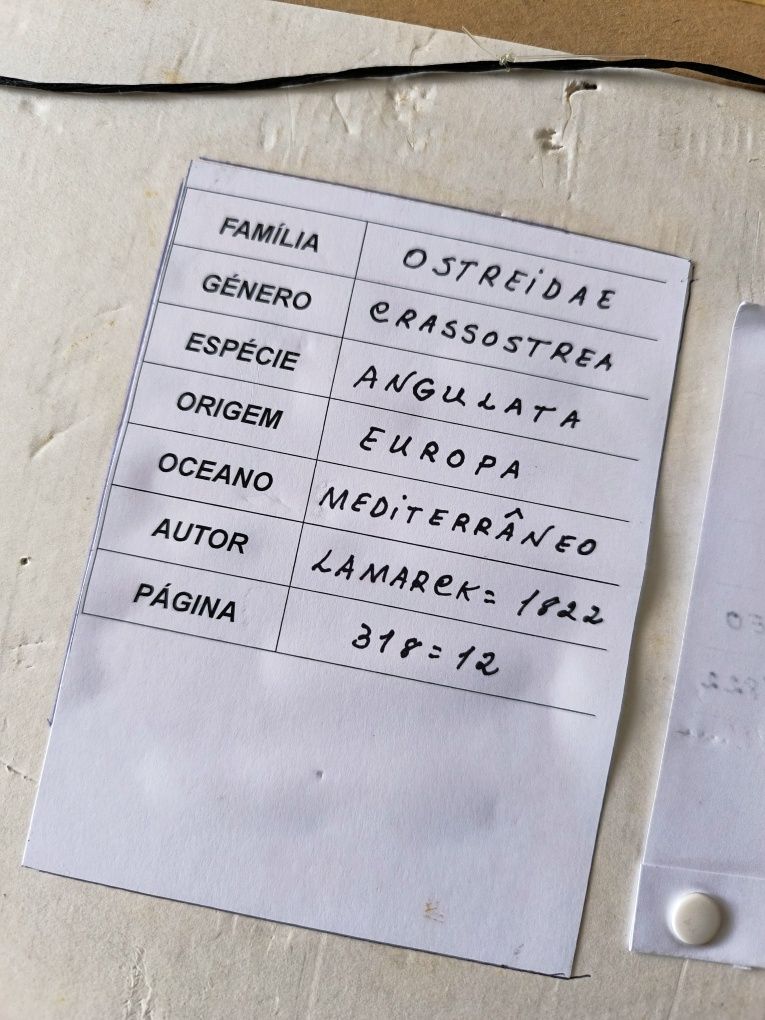 FAMÍLIA OSTREIDAE
GÉNERO CRASSOSTREA
ESPÉCIE ANGULATA
ORIGEM EUROPA
OCEANO MEDITERRÂNEO
AUTOR LAMARCK = 1822
PÁGINA 318 = 12